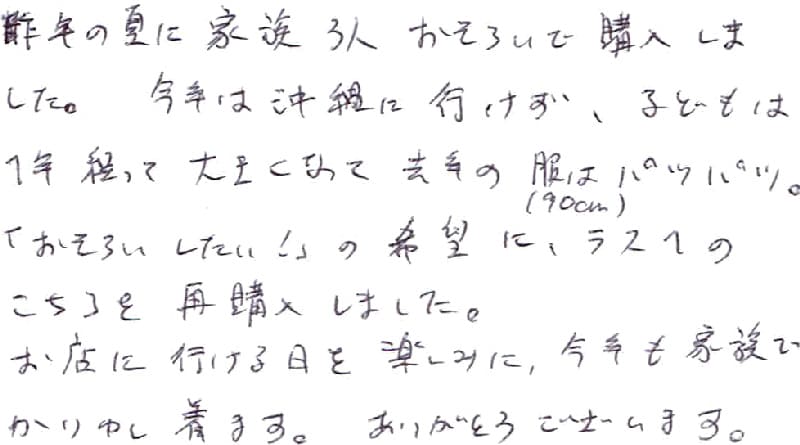 昨年の夏に家族3人おそろいで購入しま
した。 今年は沖縄に行けず、子どもは
1年経って大きくなって去年の服はパツパツ。
(90cm)
「おそろいしたい!」の希望に、ラス1の
こちらを再購入しました。
お店に行ける日を楽しみに、今年も家族で
かりゆし着ます。 ありがとうございます。